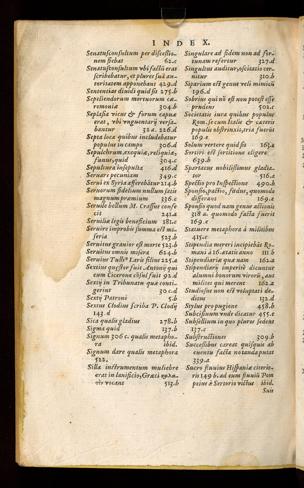 INDEX.
Senatusconsultum per discessio-
nem fiebat 62.c
Senatusconsultum vbi factū erat
scribebatur, et plures suā au-
ctoritatem apponebant 429.d
Sententias diuidi quid sit 275.b
Septiendorum mortuorum ca-
remonia 304.b
Septasia vicus & forum capue
erat, vbi vnguentarij versa-
bantur 52.a. 226.d
Septa loca quibus includebatur
populus in campo 306.d
Sepulchrum, exequiæ, reliquiæ,
funus, quid 304.c
Sepultura insepulta 416.d
Seruare pecuniam 349.c
Serui ex Syria afferebātur 214.b
Seruorum fidelium nullum satis
magnum præmium 336.c
Seruile bellum M. Crassus confe-
cit 241.a
Seruiliæ legis beneficium 181.c
Seruire improbis summa est mi-
seria 523.b
Seruitus grauior est morte 523.b
Seruitus omnis misera 624.b
Seruius Tull⁹ Laris filius 225.a
Sextius quæstor fuit Antonij quū
cum Cicerone cōsul fuit 92.d
Sextij in Tribunatu quæ conti-
gerint 30.c.d
Sexty Patroni 5.b
Sextus Clodius scriba P. Clodij
143.d
Sica qualis gladius 278.b
Signa quid 137.b
Signum 506 c. qualis metapho-
ra ibid.
Signum dare qualis metaphora
522.
Silla instrumentum muliebre
erat in lanificio, Græci
vir vocant 513.b
Singulare ad fidem non ad for-
tunam refertur 327.d
Singultus auditur, oscitatio cer-
nitur 310.b
Siparium est genus veli mimicū
196.d
Sobrius qui nō est non potest esse
prudens 502.d
Societatis iura quibus populus
Rom. secum Italie & cæteris
populis obstrinxit, tria fuerūt
169.a
Solum vertere quid sit 162.a
Sortiri est sortitione eligere
639.b
Spartacus nobilissimus gladia-
tor 516.c
Spectio pro Inspectione 490.b
Spensio, pactio, fœdus, quomodo
differant 169.a
Sponsio quid nam genus allionis
318 a. quomodo facta fuerit
169.c
Statuere metaphora à militibus
415.c
Stipendia mereri incipiebāt Ro-
mani à 16. ætatis anno 111.b
Stipendiariæ quæ nam 162.a
Stipendiarij imperiū dicuntur
alumni bonorum virorū, aut
milites qui merent 162.a
Studiosius non est voluptati de-
ditus 132.d
Stylus pro pugione 458.b
Subcisiuum vnde dicatur 455.d
Subsellium in quo plures sedent
137.c
Substructiones 309.b
Succesibus careat quisquis ab
euentu facta notanda putat
339.a
Sucro fluuius Hispaniæ citerio-
ris 149 b. ad eum fluuiū Pom
peius à Sertorio victus ibid.
Suis